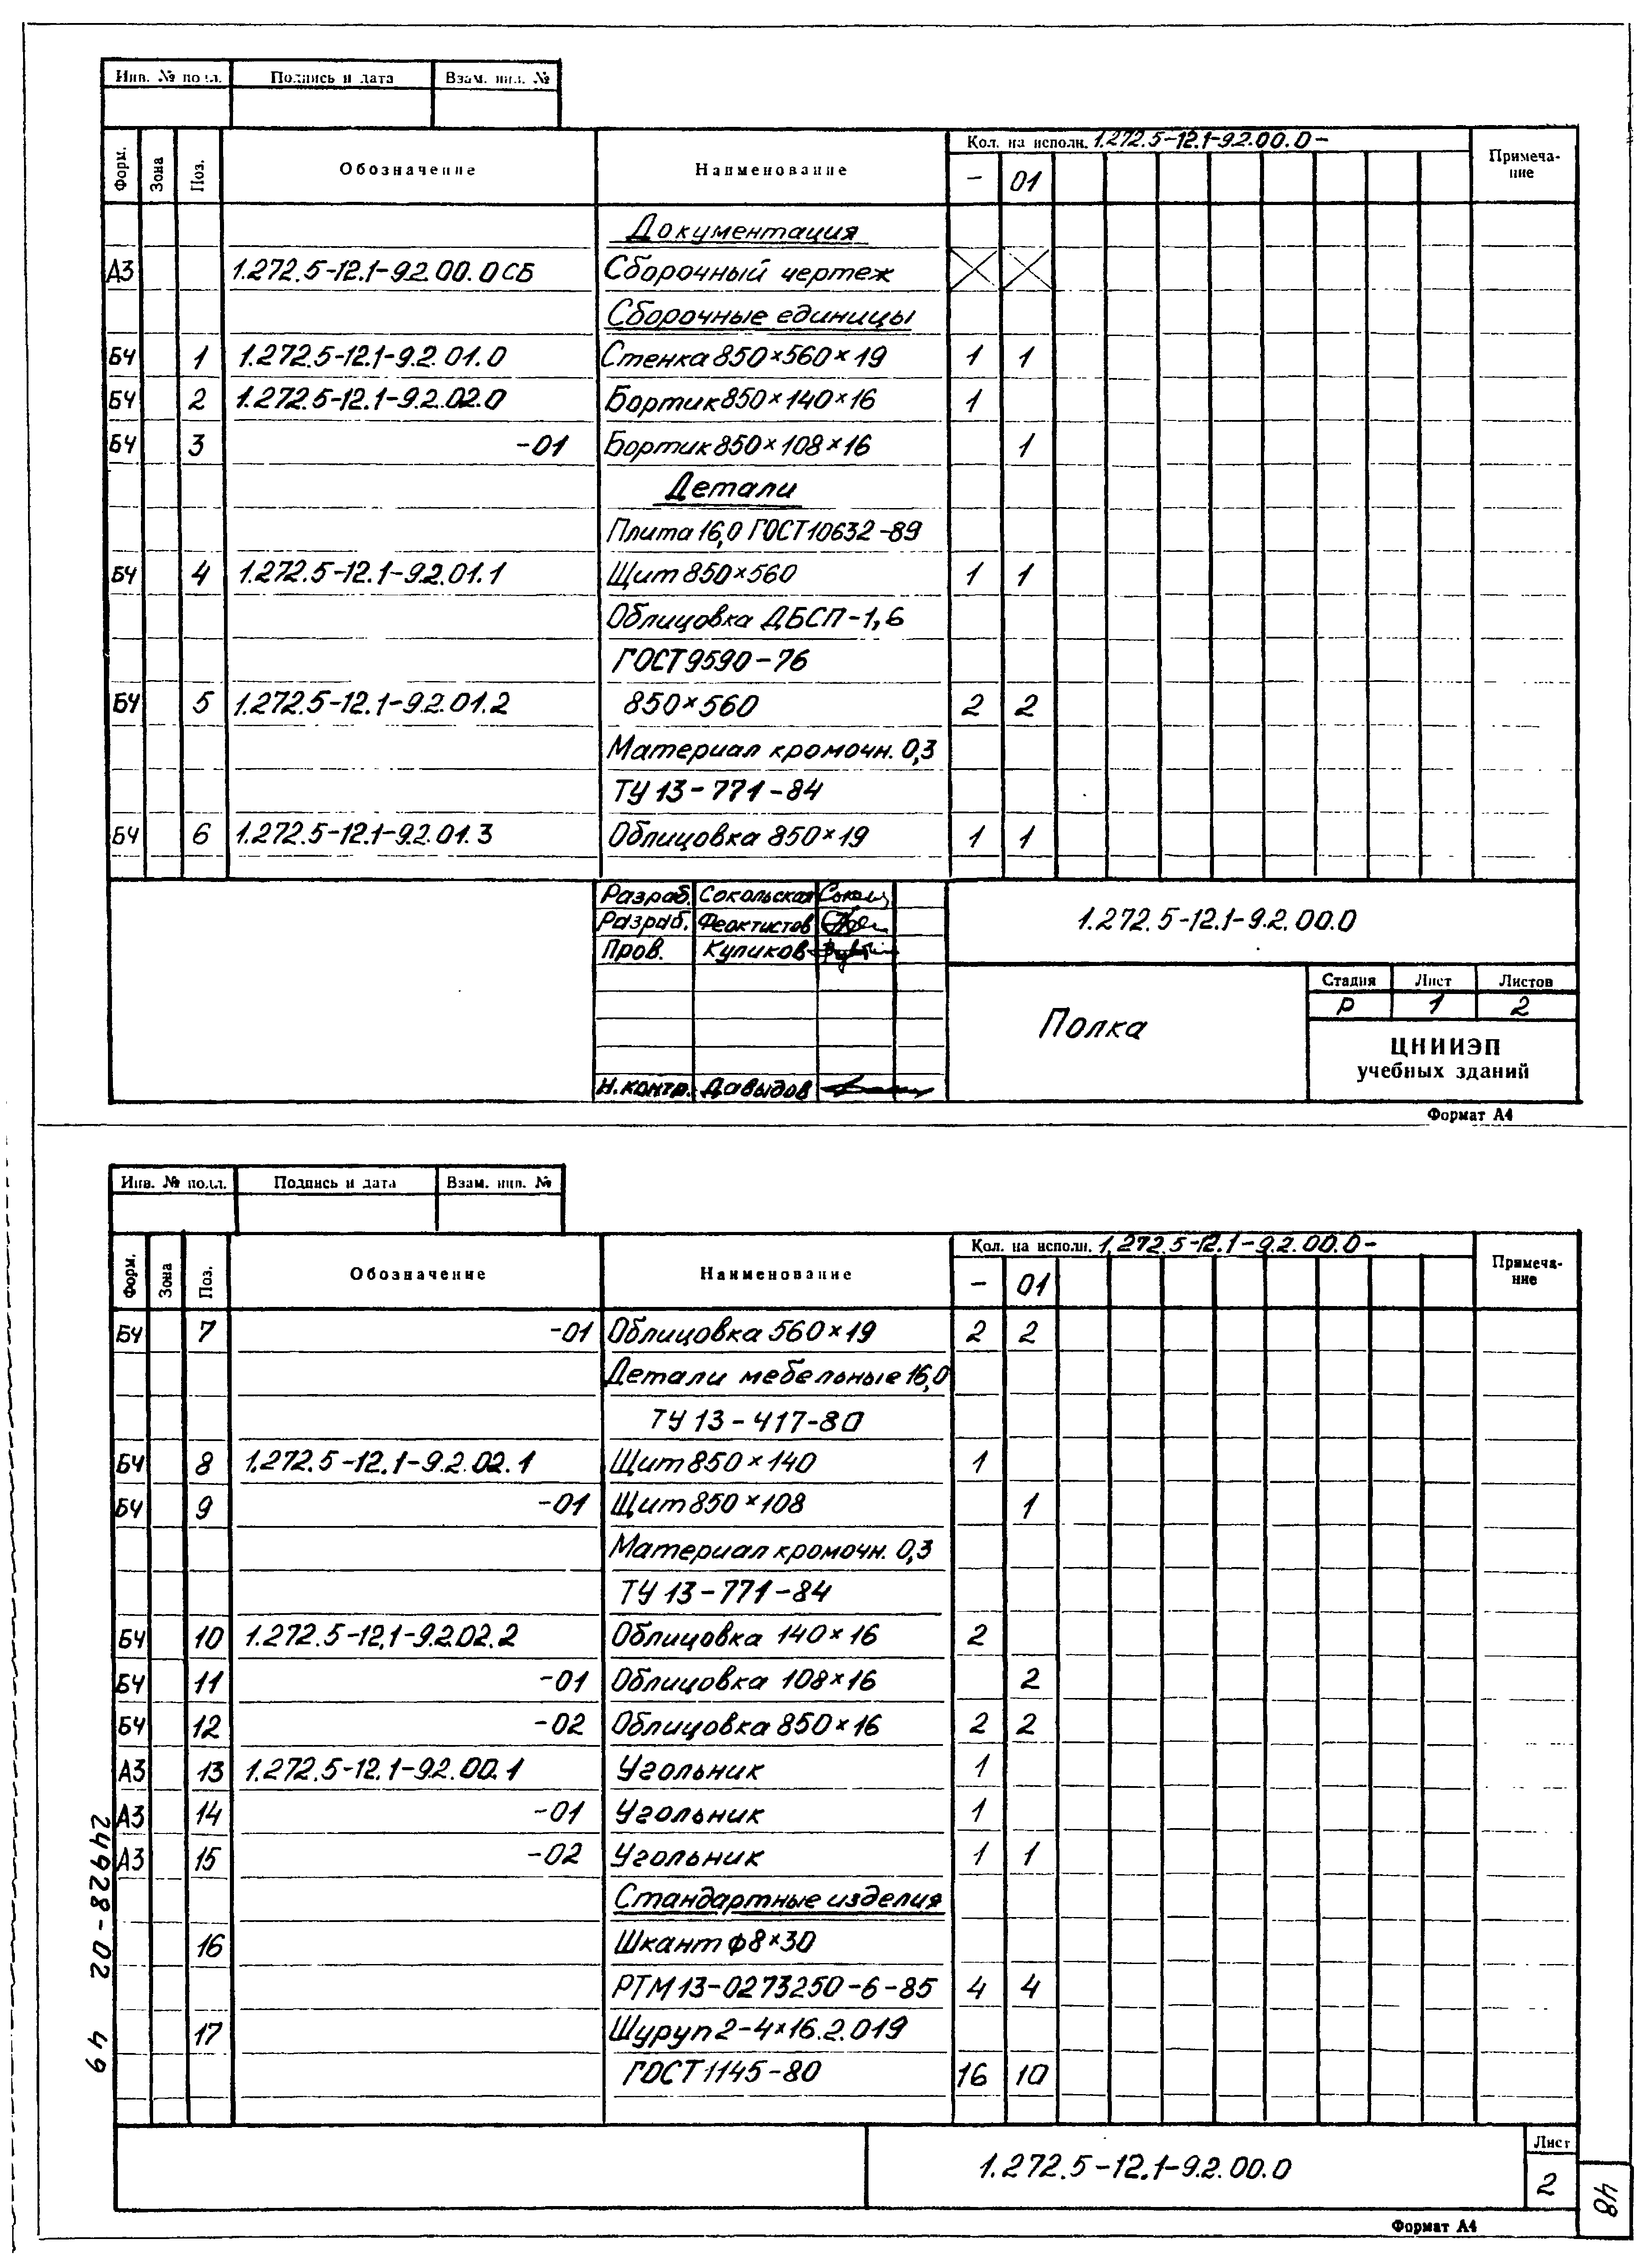 Инв. № подл. Подпись и дата Взам. инв. №
Форм. Зона Поз. Обозначение Наименование Кол. на исполн. 1.272.5-12.1-9.2.00.0- Примеча-
ние
- 01
Документация
А3 1.272.5-12.1-9.2.00.0СБ Сборочный чертеж
Сборочные единицы
БЧ 1 1.272.5-12.1-9.2.01.0 Стенка 850×560×19 1 1
БЧ 2 1.272.5-12.1-9.2.02.0 Бортик 850×140×16 1
БЧ 3 -01 Бортик 850×108×16 1
Детали
Плита 16,0 ГОСТ 10632-89
БЧ 4 1.272.5-12.1-9.2.01.1 Щит 850×560 1 1
Облицовка ДБСП-1,6
ГОСТ 9590-76
БЧ 5 1.272.5-12.1-9.2.01.2 850×560 2 2
Материал кромочн. 0,3
ТУ 13-771-84
БЧ 6 1.272.5-12.1-9.2.01.3 Облицовка 850×19 1 1
Разраб. Сокольская
Разраб. Феоктистов
Пров. Куликов
Н.контр. Давыдов
1.272.5-12.1-9.2.00.0
Полка
Стадия Лист Листов
Р 1 2
ЦНИИЭП
учебных зданий
Формат А4
Инв. № подл. Подпись и дата Взам. инв. №
Форм. Зона Поз. Обозначение Наименование Кол. на исполн. 1.272.5-12.1-9.2.00.0- Примеча-
ние
- 01
БЧ 7 -01 Облицовка 560×19 2 2
Детали мебельные 16,0
ТУ 13-417-80
БЧ 8 1.272.5-12.1-9.2.02.1 Щит 850×140 1
БЧ 9 -01 Щит 850×108 1
Материал кромочн. 0,3
ТУ 13-771-84
БЧ 10 1.272.5-12.1-9.2.02.2 Облицовка 140×16 2
БЧ 11 -01 Облицовка 108×16 2
БЧ 12 -02 Облицовка 850×16 2 2
А3 13 1.272.5-12.1-9.2.00.1 Угольник 1
А3 14 -01 Угольник 1
А3 15 -02 Угольник 1 1
Стандартные изделия
16 Шкант ф8×30
РТМ 13-0273250-6-85 4 4
17 Шуруп 2-4×16.2.019
ГОСТ 1145-80 16 10
24928-02 49
1.272.5-12.1-9.2.00.0
Лист
2
48
Формат А4